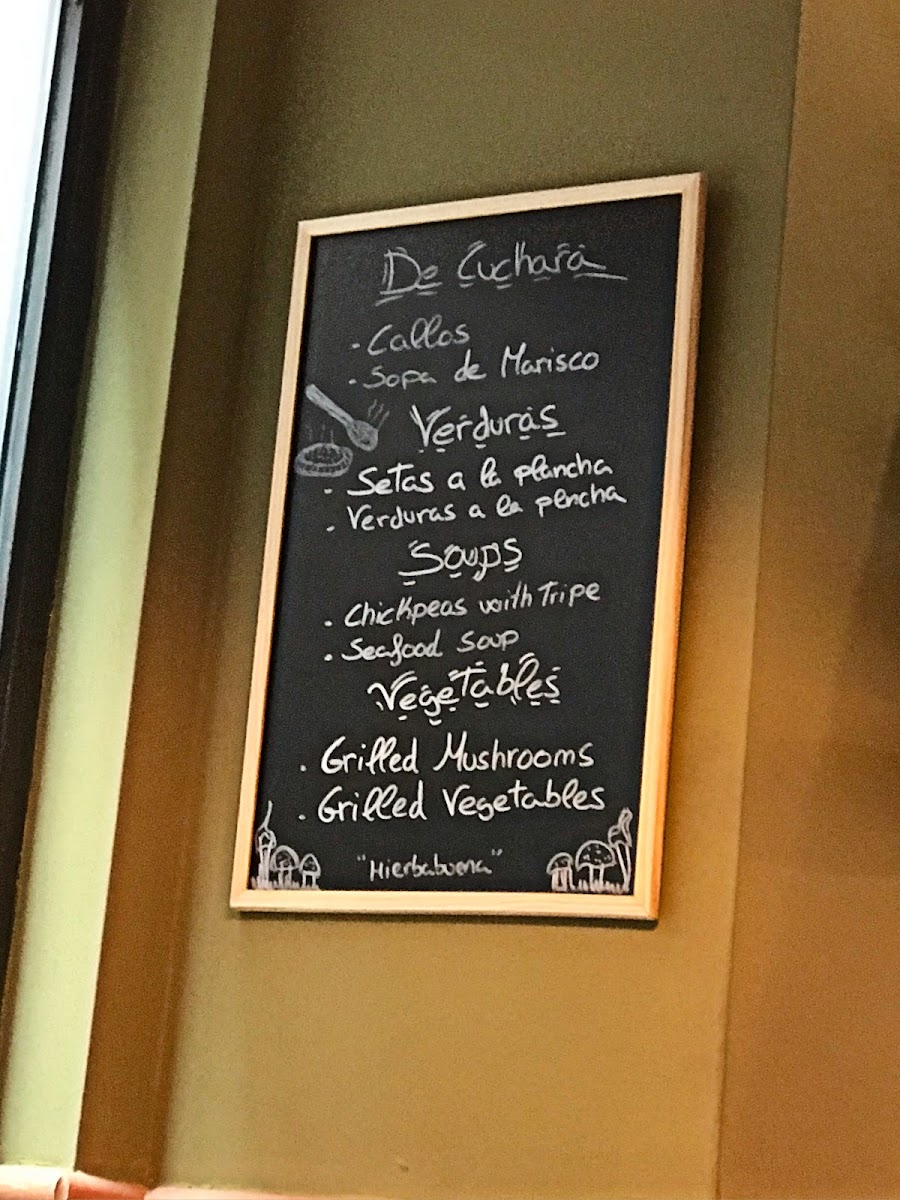 De Cuchara
- Callos
- Sopa de Marisco
Verduras
- Setas a la plancha
- Verduras a la plencha
Soups
- Chickpeas with Tripe
- Seafood Soup
Vegetables
. Grilled Mushrooms
. Grilled Vegetables
"Hierbabuena"